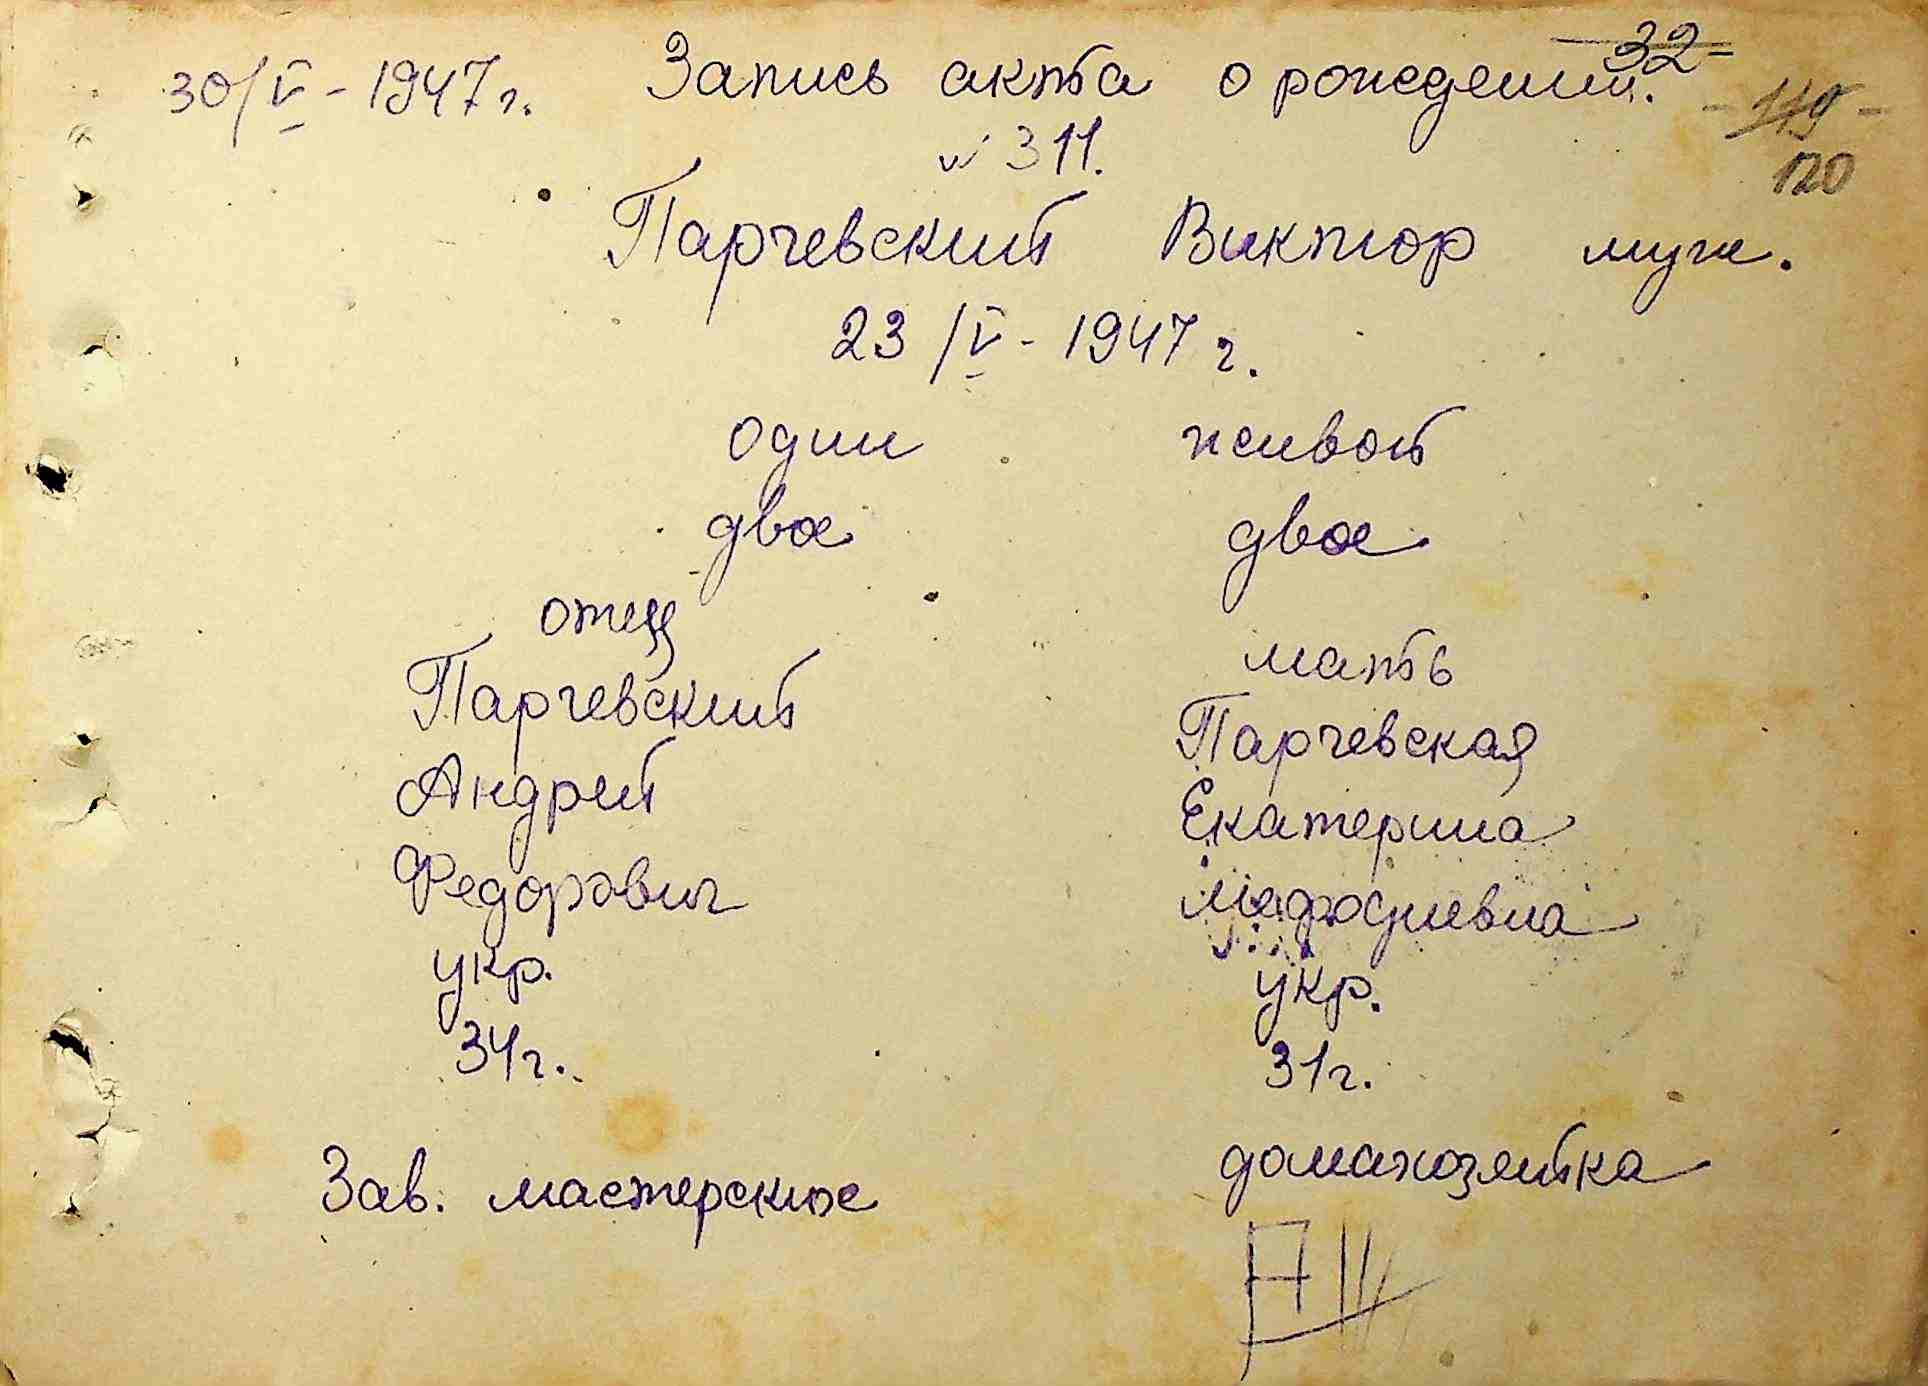 32
30/V - 1947 г. Запись акта о рождении.
119
№ 311.
120
Парчевский Виктор муж.
23/V - 1947 г.
один живой
двое двое
отец мать
Парчевский Парчевская
Андрей Екатерина
Федорович
укр. укр.
34г. 31г.
Зав. мастерское домахозяйка